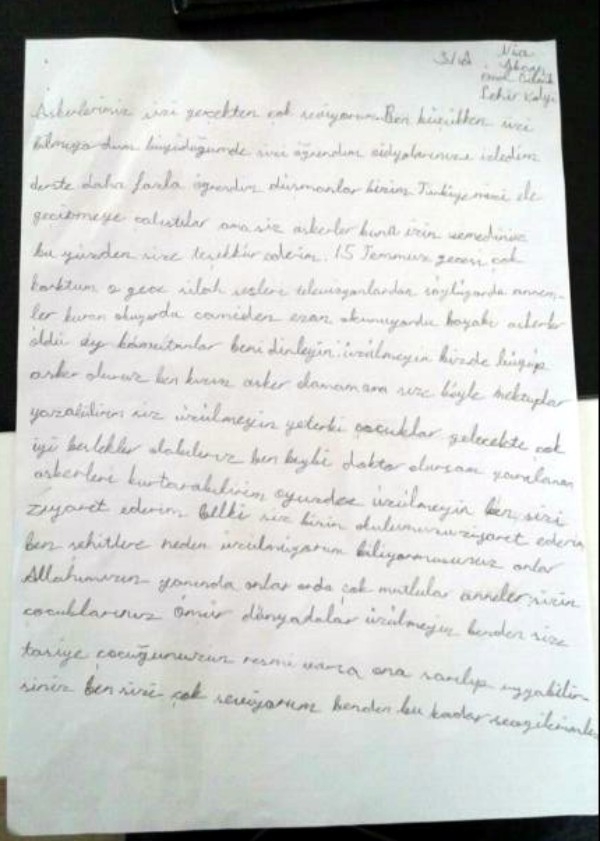 3/A
Askerlerimiz sizi gerçekten çok seviyorum Ben küçükken sizi
bilmiyodum büyüdüğümde sizi öğrendim vidyolarınızı izledim
derste daha fazla öğrendim düşmanlar bizim Türkiyemizi ele
geçirmeye çalıştılar ama siz askerler buna izin vermediniz
bu yüzden size teşekkür ederim. 15 Temmuz gecesi çok
korktum o gece silah sesleri televizyonlardan söylüyordu annem-
ler kuran okuyordu camiden ezan okunuyordu bazı askerler
öldü ey komutanlar beni dinleyin üzülmeyin bizde büyüyüp
asker oluruz ben kızım asker olamam ama size böyle mektuplar
yazabilirim siz üzülmeyin yeterki çocuklar gelecekte çok
iyi olabiliriz ben belki doktor olursam yaralanan
askerleri kurtarabilirim oyuzden üzülmeyin ben sizi
ziyaret ederim belki siz bizim okulumuzu ziyaret edersin
ben şehitlere neden üzülmüyorum biliyormusunuz onlar
Allahımızın yanında onlar orda çok mutlular anneler sizin
çocuklarınız ömür dünyadalar üzülmeyin benden size
tavsiye çocuğunuzun resmi varsa ona sarılıp uyuyabilir-
siniz ben sizi çok seviyorum benden bu kadar